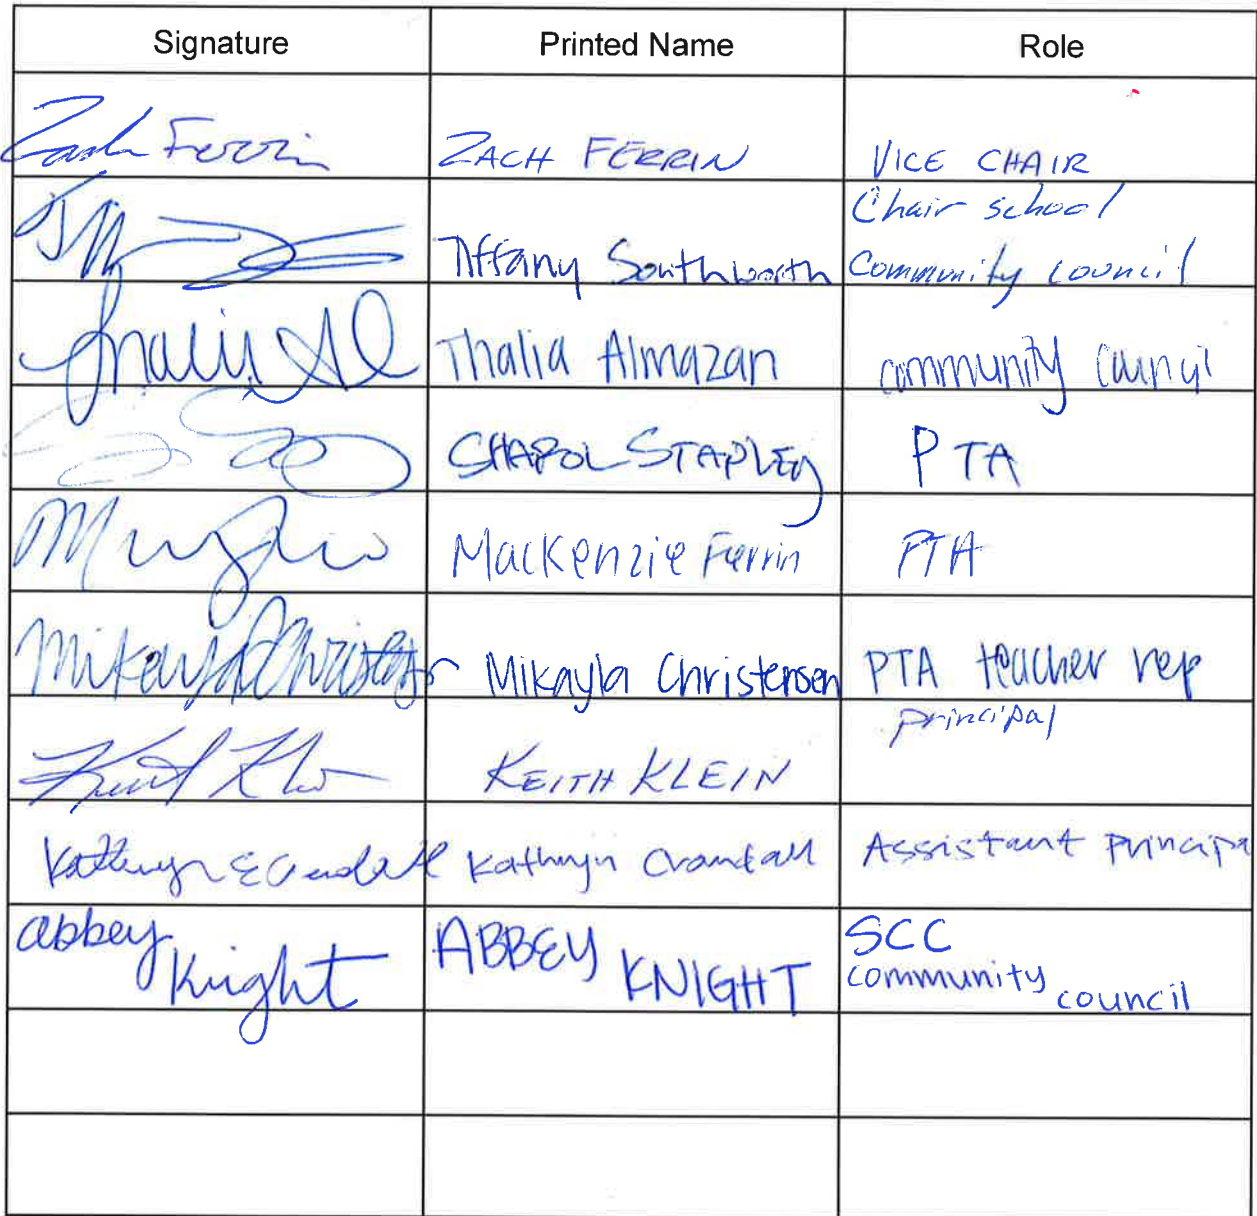 Signature Printed Name Role
Zach Ferrin ZACH FERRIN VICE CHAIR
Chair school
Tiffany Southworth Community Council
Thalia Almazan community council
SHAROL STAPLEY PTA
Mackenzie Ferrin PTA
Mikayla Christensen Mikayla Christensen PTA teacher rep
principal
KEITH KLEIN
Kathryn E Crandall Kathryn Crandall Assistant Principa
abbey ABBEY SCC
Knight KNIGHT community
council